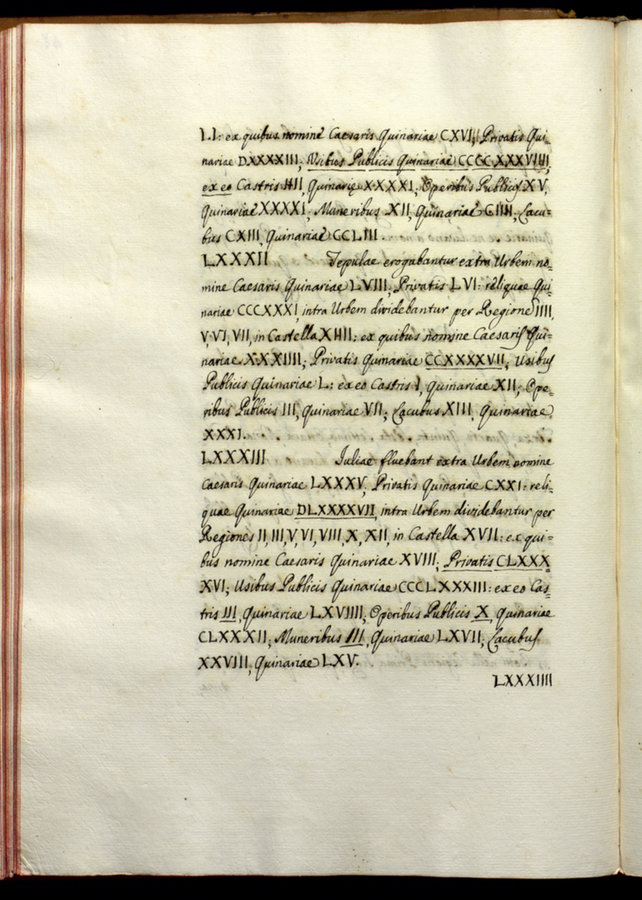 LI: ex quibus nomine Caesaris Quinariae CXVI; Privatis Qui-
nariae DXXXXIII; Usibus Publicis Quinariae CCCCXXXVIIII,
ex eo Castris IIII, Quinariae XXXXI; Operibus Publicis XV,
Quinariae XXXXI; Muneribus XII, Quinariae CIIII; Lacu-
bus CXIII, Quinariae CCLIII.
LXXXII Tepulae erogabantur extra Urbem no-
mine Caesaris Quinariae LVIII; Privatis LVI: reliquae Qui-
nariae CCCXXXI, intra Urbem dividebantur per Regiones IIII,
V, VI, VII, in Castella XIIII: ex quibus nomine Caesaris Qui-
nariae XXXIIII; Privatis Quinariae CCXXXXVII; Usibus
Publicis Quinariae L: ex eo Castris I, Quinariae XII; Ope-
ribus Publicis III, Quinariae VII; Lacubus XIII, Quinariae
XXXI.
LXXXIII Iuliae fluebant extra Urbem nomine
Caesaris Quinariae LXXXV; Privatis Quinariae CXXI: reli-
quae Quinariae DLXXXXVII, intra Urbem dividebantur per
Regiones II, III, V, VI, VIII, X, XII, in Castella XVII: ex qui-
bus nomine Caesaris Quinariae XVIII; Privatis CLXXX
XVI; Usibus Publicis Quinariae CCCLXXXIII: ex eo Cas-
tris III, Quinariae LXVIIII; Operibus Publicis X, Quinariae
CLXXXII; Muneribus III, Quinariae LXVII; Lacubus
XXVIII, Quinariae LXV.
LXXXIIII